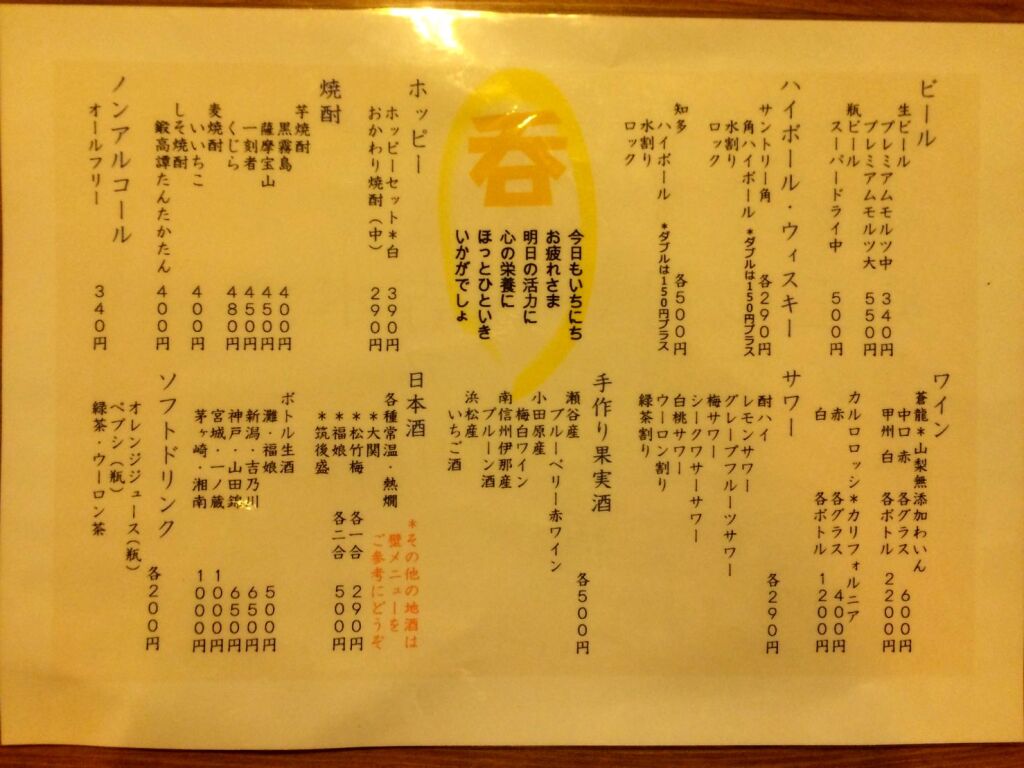 ビール
生ビール
プレミアムモルツ中 340円
プレミアムモルツ大 550円
瓶ビール
スーパードライ中 500円
ハイボール・ウィスキー
サントリー角 各290円
角ハイボール *ダブルは150円プラス
水割り
ロック
知多 各500円
ハイボール *ダブルは150円プラス
水割り
ロック
呑
今日もいちにち
お疲れさま
明日の活力に
心の栄養に
ほっとひといき
いかがでしょ
ホッピー
ホッピーセット*白 390円
おかわり焼酎(中) 290円
焼酎
芋焼酎
黒霧島 400円
薩摩宝山 450円
一刻者 450円
くじら 480円
麦焼酎
いいちこ 400円
しそ焼酎
鍛高譚たんたかたん 400円
ノンアルコール
オールフリー 340円
ワイン
蒼龍*山梨無添加わいん
中口 赤 各グラス 600円
甲州 白 各ボトル 2200円
カルロロッシ*カリフォルニア
赤 各グラス 400円
白 各ボトル 1200円
サワー
酎ハイ 各290円
レモンサワー
グレープフルーツサワー
梅サワー
シークワサーサワー
白桃サワー
ウーロン割り
緑茶割り
手作り果実酒
瀬谷産 各500円
ブルーベリー赤ワイン
小田原産
梅白ワイン
南信州伊那産
プルーン酒
浜松産
いちご酒
日本酒
*その他の地酒は
壁メニューを
ご参考にどうぞ
各種常温・熱燗
*大関
*松竹梅 各一合 290円
*福娘 各二合 500円
*筑後盛
ボトル生酒
灘・福娘 500円
新潟・吉乃川 650円
神戸・山田錦 650円
宮城・一ノ蔵 1000円
茅ヶ崎・湘南 1000円
ソフトドリンク
各200円
オレンジジュース(瓶)
ペプシ(瓶)
緑茶・ウーロン茶